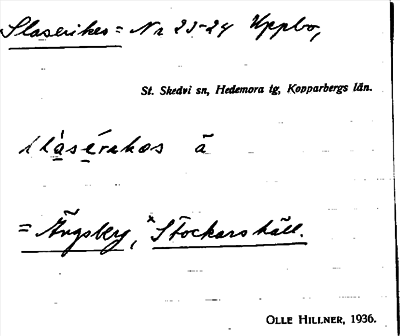 Slaserikes = Nr 23-24 Uppbo,
St. Skedvi sn, Hedemora tg, Kopparbergs län.
ä
= Ängsberg, ˣStockarshäll.
OLLE HILLNER, 1936.